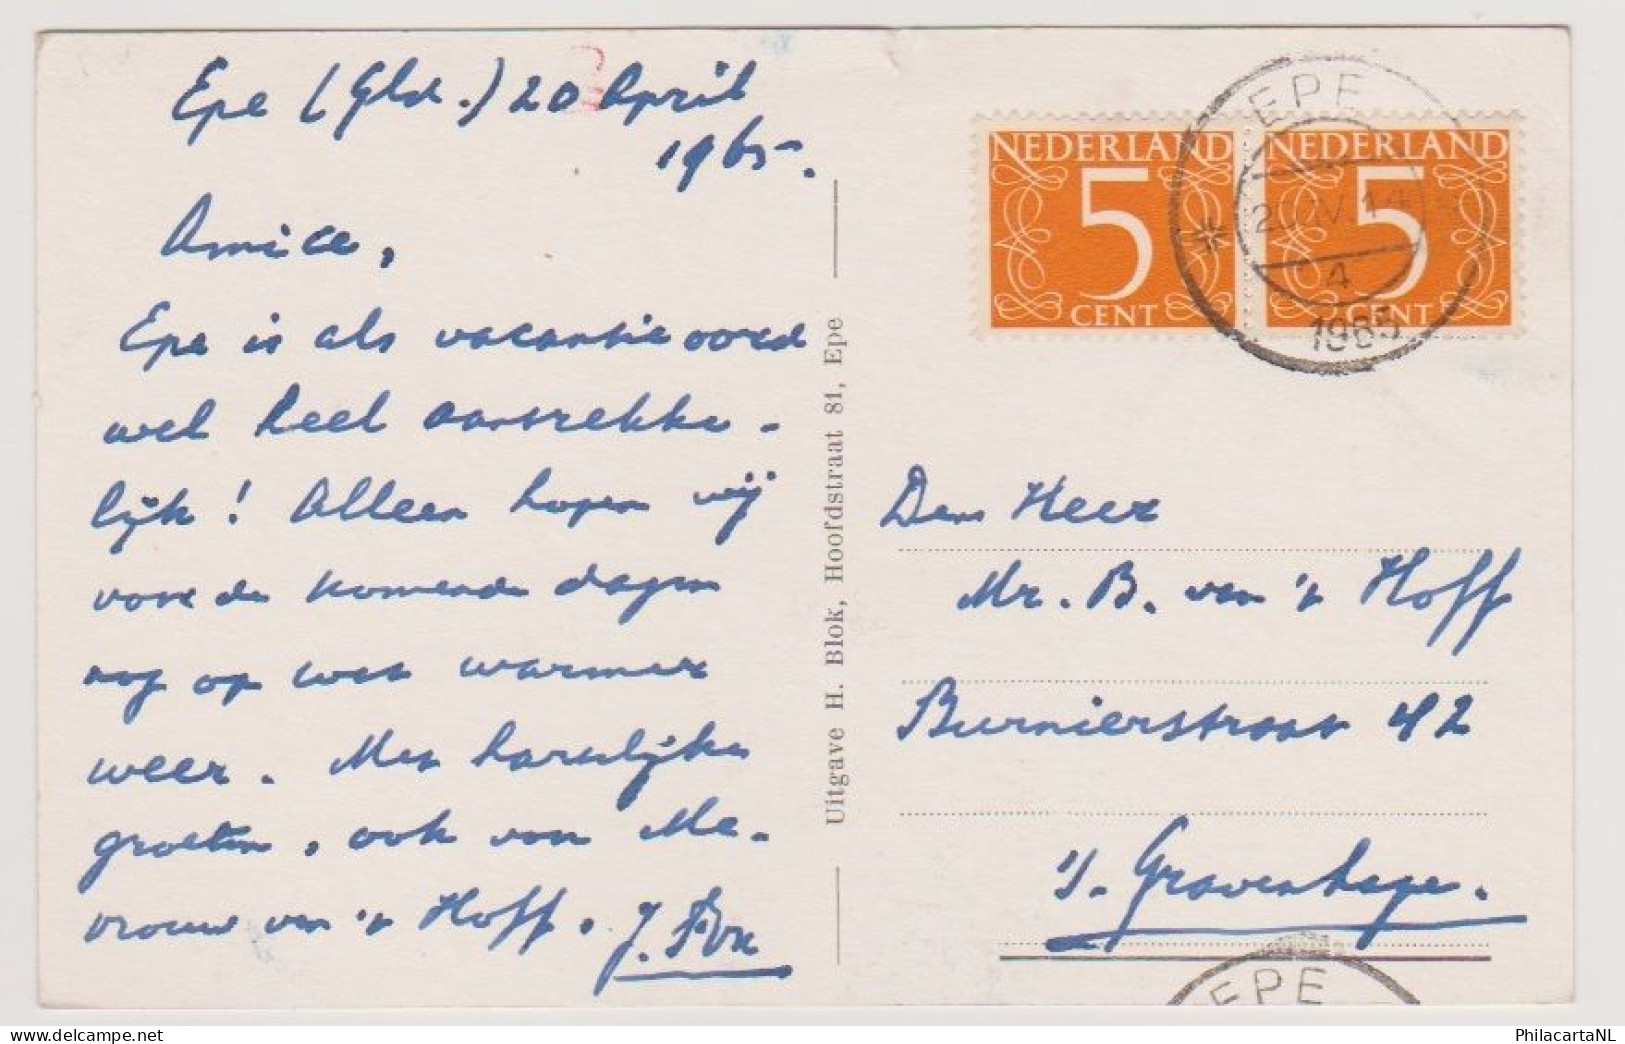 Epe (Gld.) 20 April
1965.
Amice,
Epe is als vacantieoord
wel heel aantrekke-
lijk! Alleen hopen wij
voor de komende dagen
nog op wat warmer
weer. Met hartelijke
groeten, ook van Me-
vrouw van 't Hoff. J.
Uitgave H. Blok, Hoofdstraat 81, Epe
NEDERLAND
5
CENT
NEDERLAND
5
CENT
EPE
20 IV 14
4
1965
Den Heer
Mr. B. van 't Hoff
Burnierstraat 42
's-Gravenhage.
EPE
PhilacartaNL